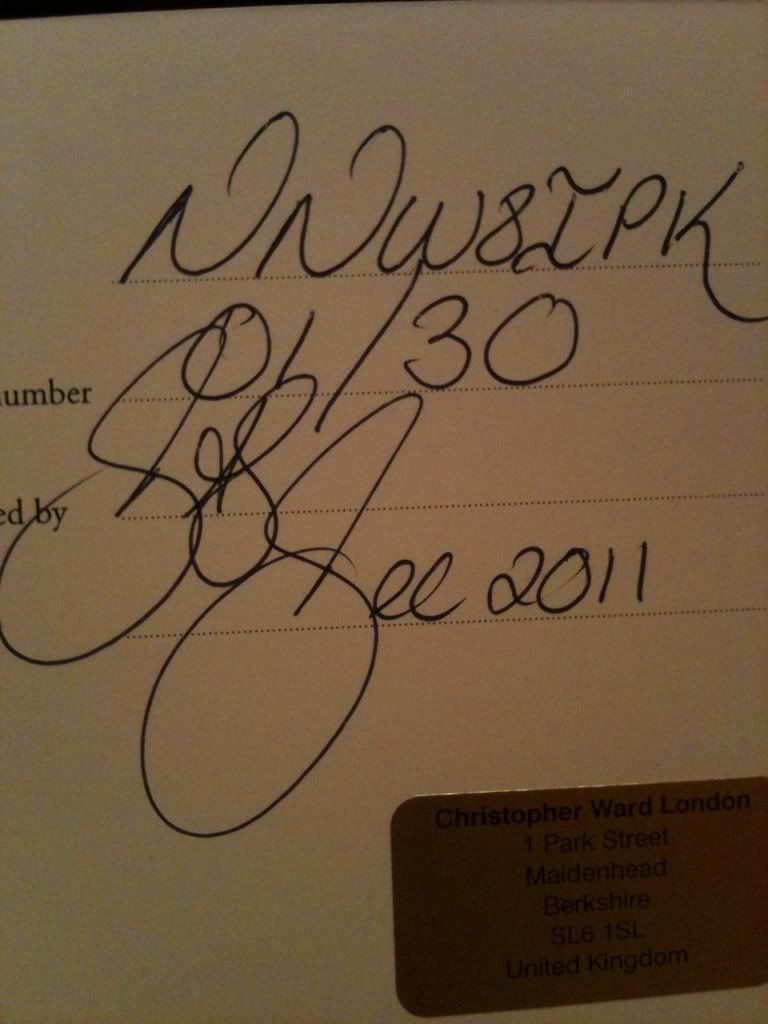 NNW8ZPK
umber 01/30
ed by
Dec 2011
Christopher Ward London
1 Park Street
Maidenhead
Berkshire
SL6 1SL
United Kingdom